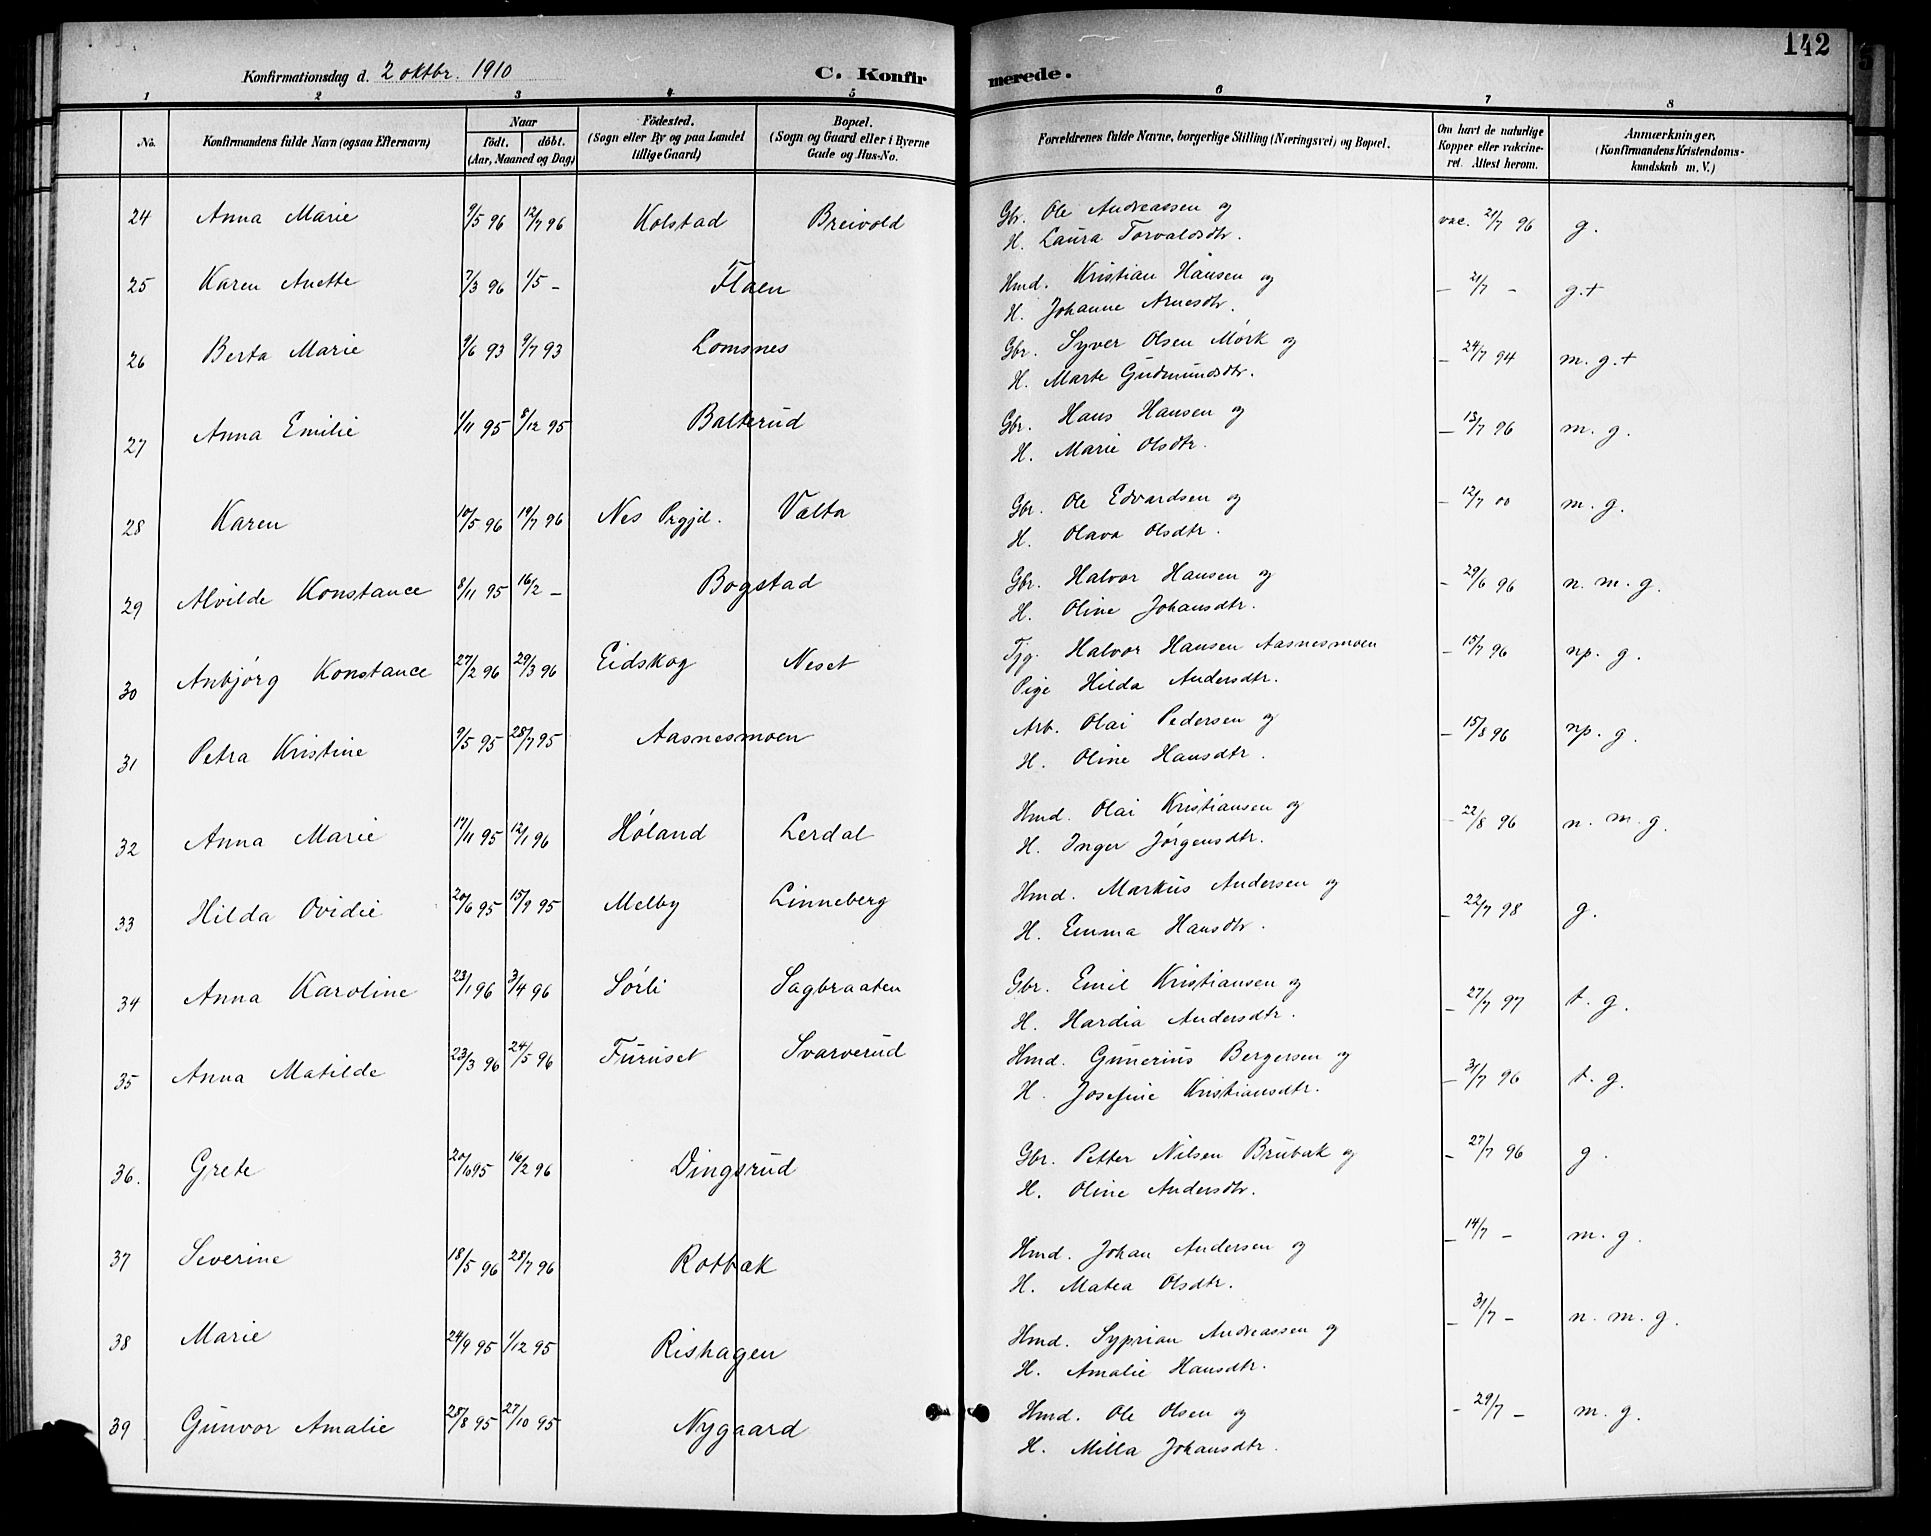 142
Konfirmationsdag d. 2 oktbr. 1910 C. Konfirmerede.
1 2 3 4 5 6 7 8
No. Konfirmandens fulde Navn (ogsaa Efternavn) Naar födt. döbt. (Aar, Maaned og Dag) Födested. (Sogn eller By og paa Landet tillige Gaard) Bopæl. (Sogn og Gaard eller i Byerne Gade og Hus-No. Forældrenes fulde Navne, borgerlige Stilling (Næringsvei) og Bopæl. Om havt de naturlige Kopper eller vakcineret. Attest herom. Anmærkninger. (Konfirmandens Kristendomskundskab m. V.)
24 Anna Marie 9/5 96 12/7 96 Kolstad Breivold Gbr. Ole Andreassen og vac. 21/7 96 g.
H. Laura Torvaldsdtr.
25 Karen Anette 7/3 96 1/5 – Flaen Hmd. Kristian Hansen og – 21/7 – g.+
H. Johanne Arnesdtr.
26 Berta Marie 9/6 93 9/7 93 Lomsnes Gbr. Syver Olsen Mørk og – 24/7 94 m. g.+
H. Marte Gudmundsdtr.
27 Anna Emilie 1/11 95 8/12 95 Balterud Gbr. Hans Hansen og – 13/7 96 m. g.
H. Marie Olsdtr.
28 Karen 10/5 96 19/7 96 Nes Prgjd. Valta Gbr. Ole Edvardsen og – 12/7 00 m. g.
H. Olava Olsdtr.
29 Alvilde Konstance 8/11 95 16/2 – Bogstad Gbr. Halvor Hansen og – 29/6 96 n. m. g.
H. Oline Johansdtr.
30 Anbjørg Konstance 27/2 96 29/3 96 Eidskog Neset Tjg. Halvor Hansen Aasnesmoen – 15/7 96 np. g.
Pige Hilda Andersdtr.
31 Petra Kristine 9/5 95 28/7 95 Aasnesmoen Arb. Olai Pedersen og – 15/8 96 np. g.
H. Oline Hansdtr.
32 Anna Marie 17/11 95 12/1 96 Høland Lerdal Hmd. Olai Kristiansen og – 22/8 96 n. m. g.
H. Inger Jørgensdtr.
33 Hilda Ovidie 20/6 95 15/9 95 Melby Linneberg Hmd. Markus Andersen og – 22/7 98 g.
H. Emma Hansdtr.
34 Anna Karoline 23/1 96 3/4 96 Sørli Sagbraaten Gbr. Emil Kristiansen og – 27/7 97 t. g.
H. Hardia Andersdtr.
35 Anna Matilde 23/3 96 24/5 96 Furuset Svarverud Hmd. Gunerius Bergersen og – 31/7 96 t. g.
H. Josefine Kristiansdtr.
36. Grete 95 16/2 96 Dingsrud Gbr. Petter Nilsen Brubak og – 27/7 96 g.
H. Oline Andersdtr.
37 Severine 18/5 96 28/7 96 Rotbak Hmd. Johan Andersen og – 14/7 – m. g.
H. Matea Olsdtr.
38 Marie 24/9 95 1/12 95 Rishagen Hmd. Syprian Andreassen og – 31/7 – n. m. g.
H. Amalie Hansdtr.
39 Gunvor Amalie 28/8 95 27/10 95 Nygaard Hmd. Ole Olsen og – 29/7 – m. g.
H. Milla Johansdtr.